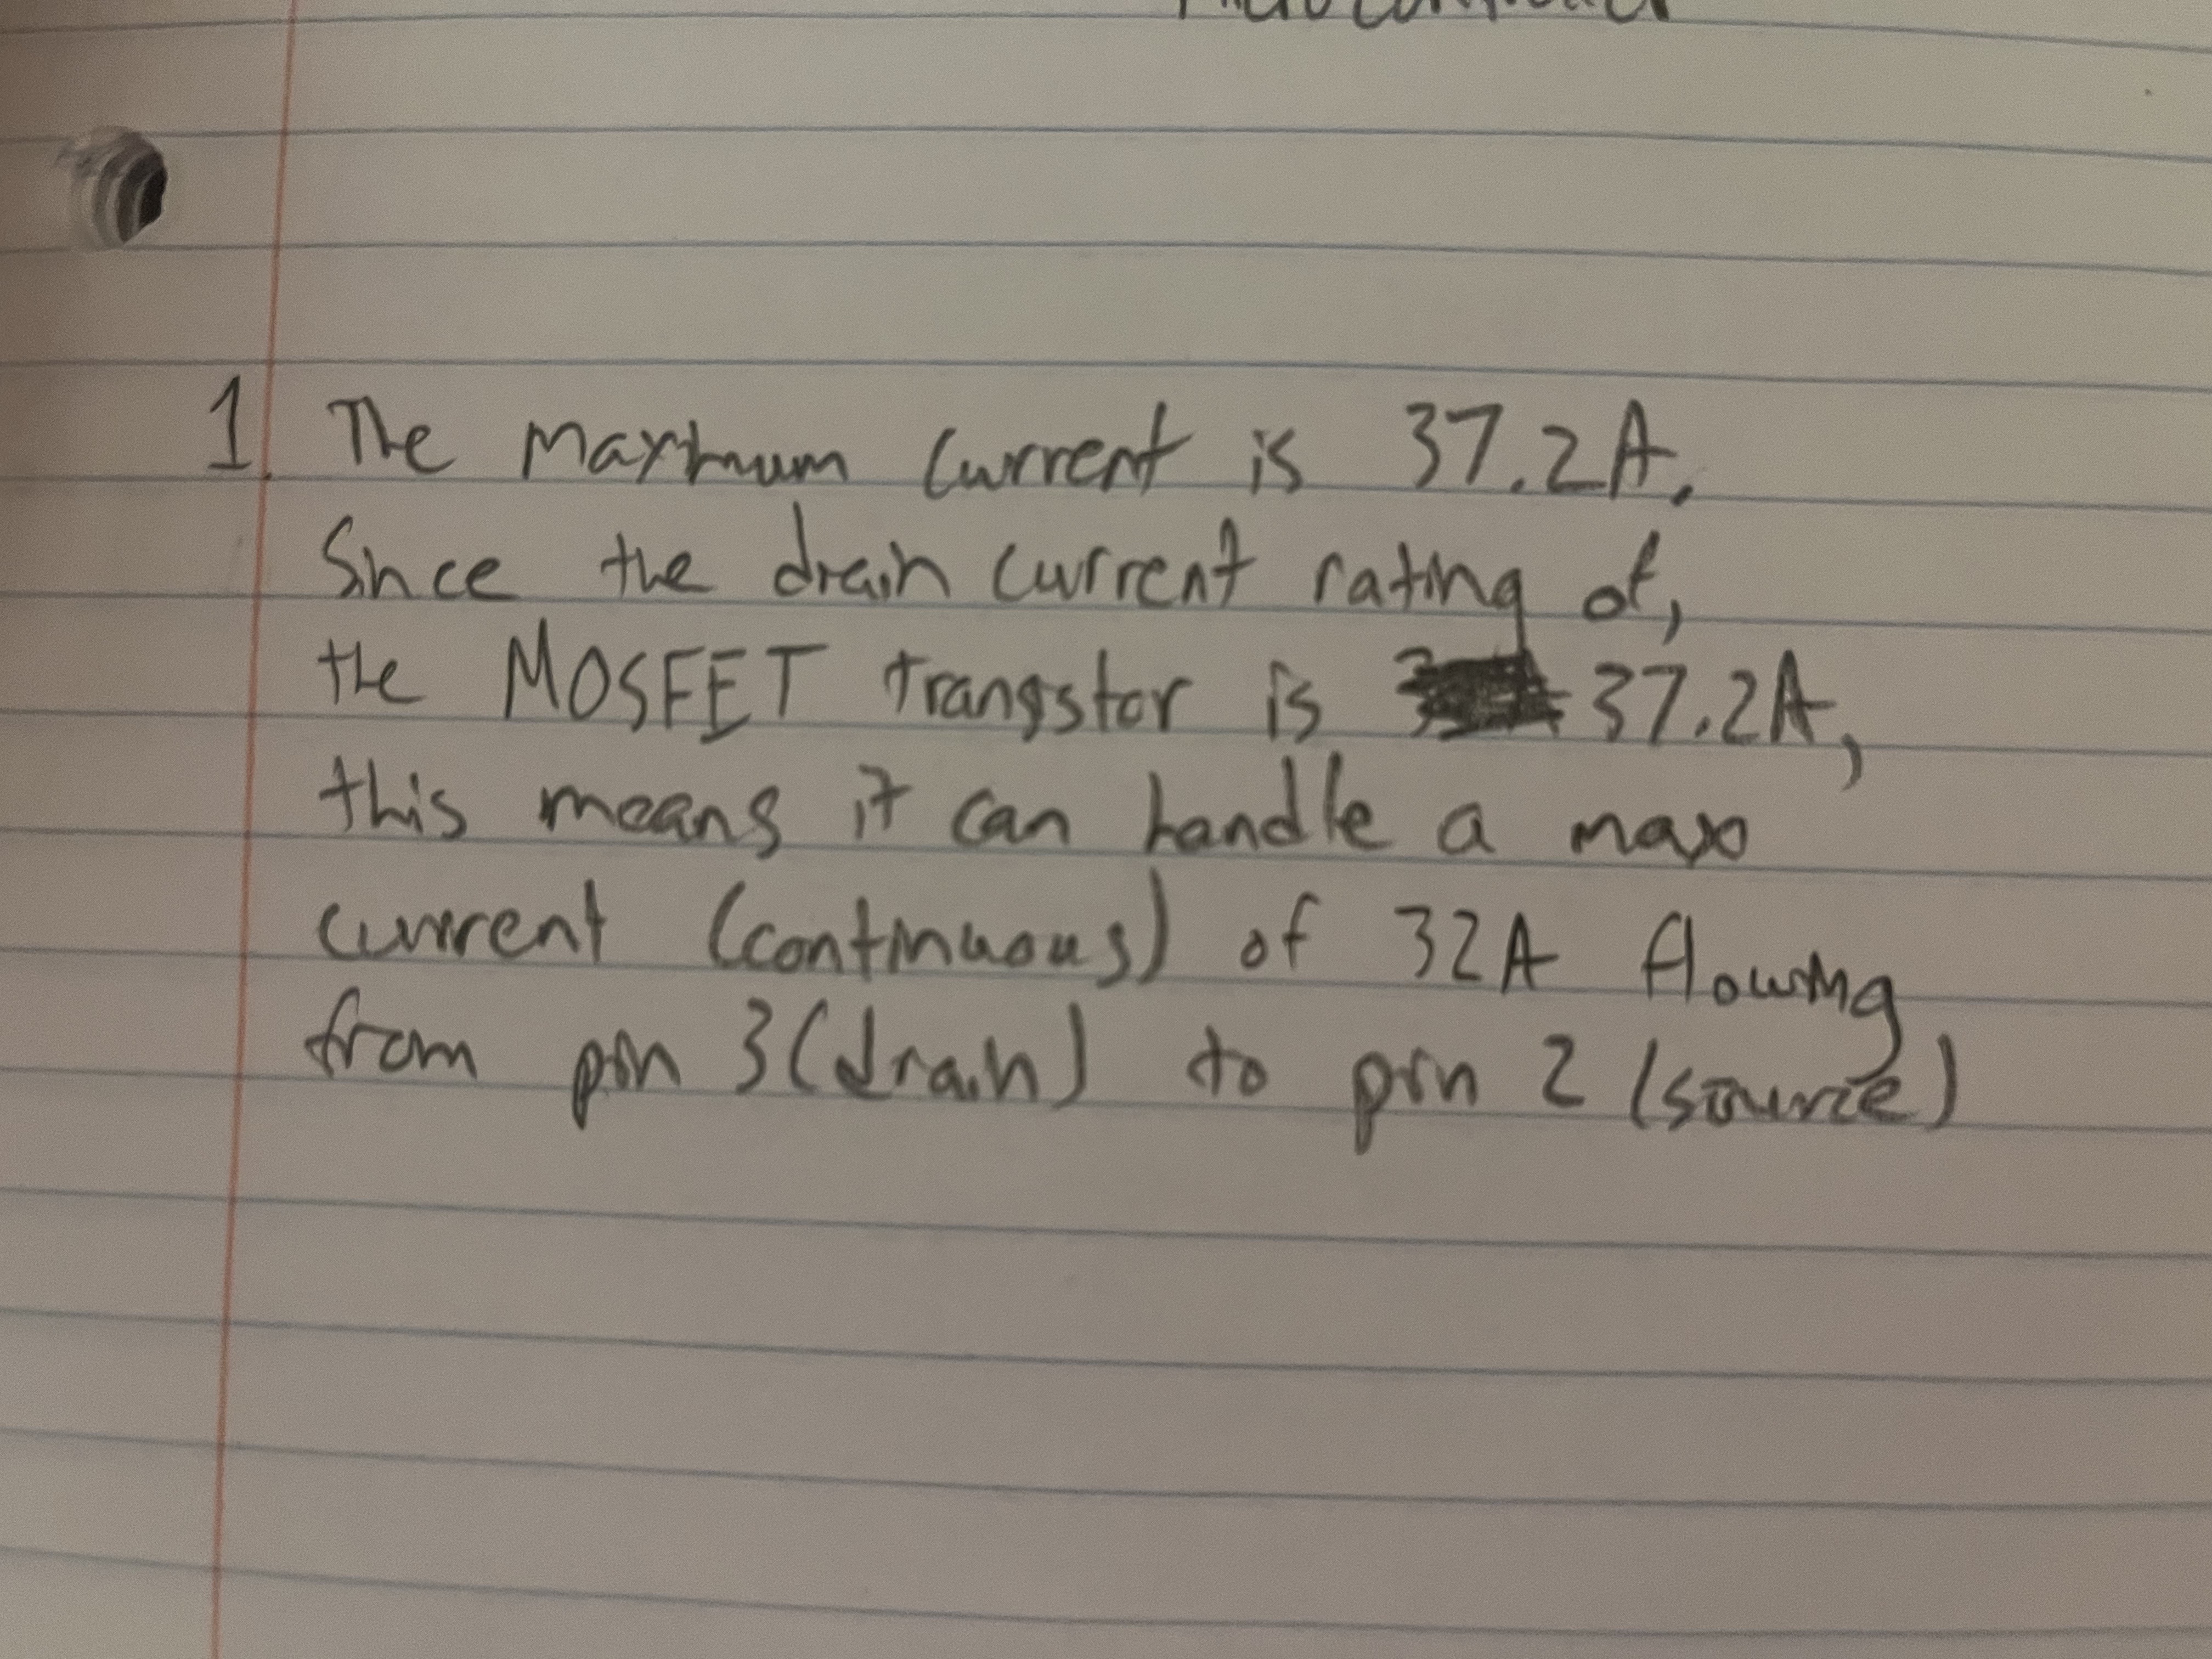 1. The maximum current is 37.2A.
Since the drain current rating of,
the MOSFET trangstor is 37.2A,
this means it can handle a max
current (continuous) of 32A flowing
from pin 3(drain) to pin 2 (source)